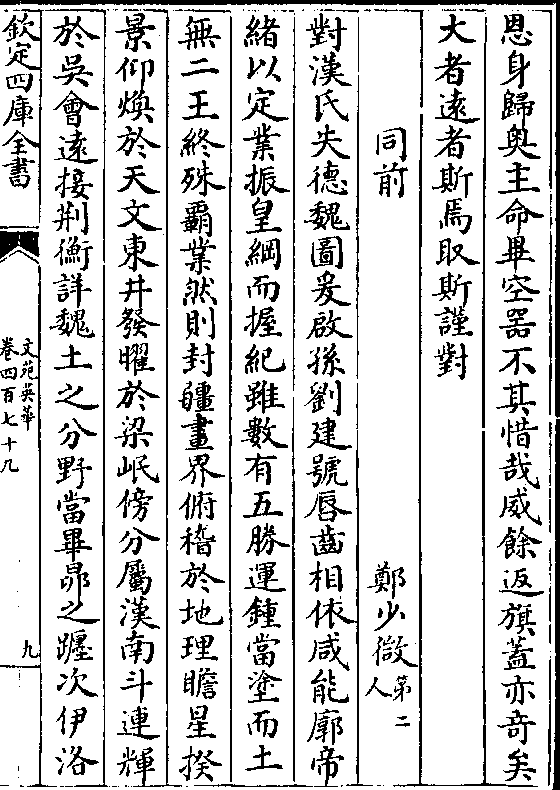 恩身歸與主命畢空器不其惜哉威餘返旗蓋亦奇矣
大者遠者斯焉取斯謹對
同前 鄭少微第二人
對漢氏失德魏圖爰啟孫劉建號唇齒相依咸能廓帝
緒以定業振皇綱而握紀雖數有五勝運鍾當塗而土
無二王終殊霸業然則封疆畫界俯稽於地理瞻星揆
景仰煥於天文東井發曜於梁岷傍分屬漢南斗連輝
於吳會遠接荆衡詳魏土之分野當畢昴之躔次伊洛
欽定四庫全書
文苑英華
卷四百七十九
九